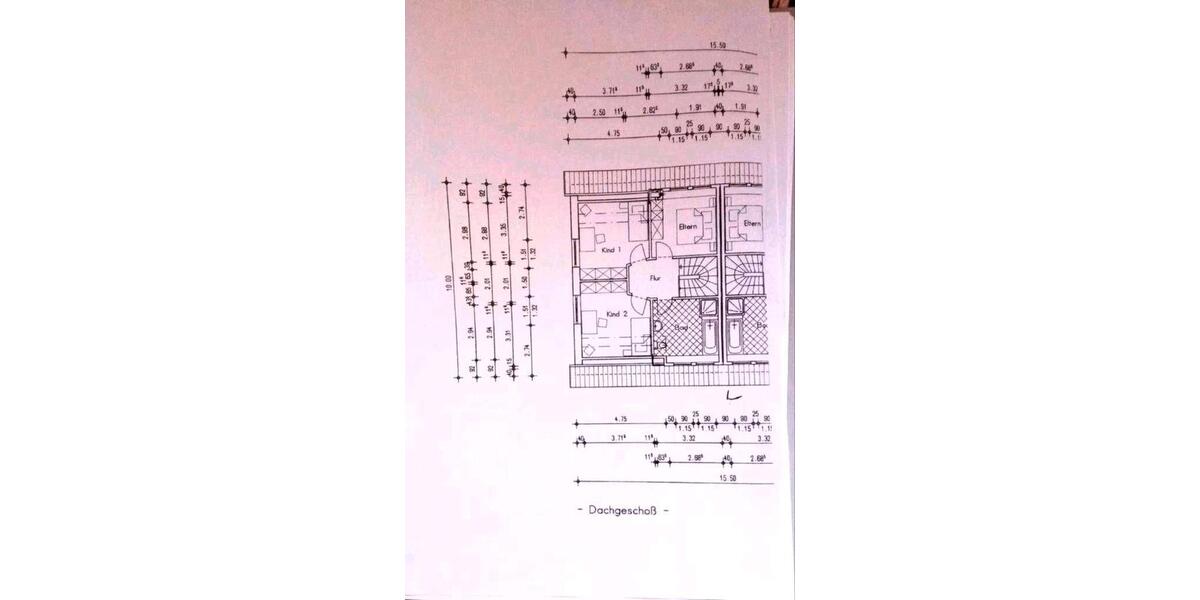 15.50
11⁵ 63⁵ 2.68⁵ 40 2.68⁵
40 3.71⁵ 11⁵ 3.32 17⁵ 5 17⁵ 3.32
40 2.50 11⁵ 2.62⁵ 1.91 40 1.91
4.75 50 90 25 90 90 90 25 90
1.15 1.15 1.15
10.00
92 2.98 39 65 11⁵ 65 2.94 92
92 2.98 11⁵ 2.01 11⁵ 2.94 92
40 15 3.35 11⁵ 2.01 11⁵ 3.31 15 40
2.74 1.51 1.50 1.51 2.74
1.32 1.32
Kind 1
Eltern
Eltern
Flur
Kind 2
Bad
4.75 50 90 25 90 90 90 25 90
1.15 1.15 1.15
40 3.71⁵ 11⁵ 3.32 40 3.32
11⁵ 63⁵ 2.68⁵ 40 2.68⁵
15.50
- Dachgeschoß -